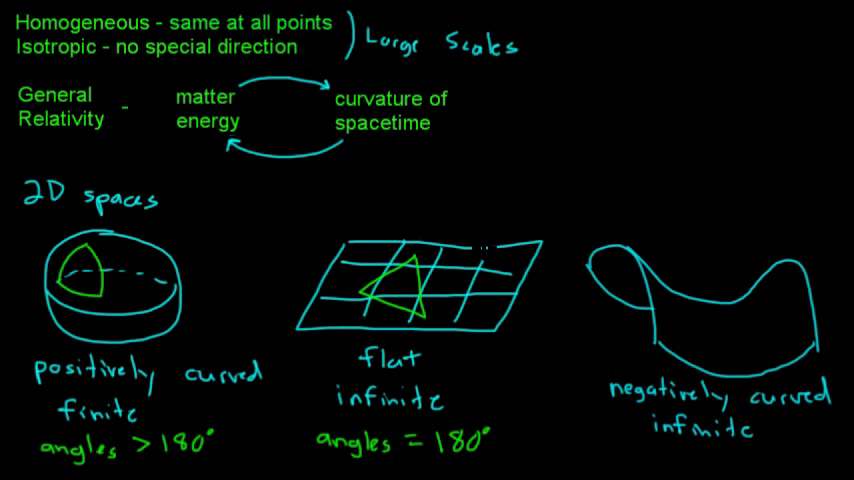 Homogeneous - same at all points
Isotropic - no special direction
Large Scales
General Relativity - matter energy
curvature of spacetime
2D spaces
positively curved
finite
angles > 180°
flat
infinite
angles = 180°
negatively curved
infinite